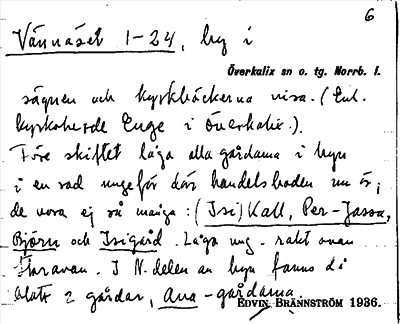 6
Vännäset 1-24, by i
Överkalix sn o. tg. Norrb. l.
sägnen och kyrkböckerna visa. (Enl.
kyrkoherde Enge i Överkalix.).
Före skiftet låga alla gårdarna i byn
i en rad ungefär där handelsboden nu är,
de vora ej så många: (Isi) Kall, Per-Jassa,
Björn och Isigård. Låga ung. rakt ovan
I N. delen av byn fanns då
blott 2 gårdar, Ana-gårdarna.
EDVIN BRÄNNSTRÖM 1936.